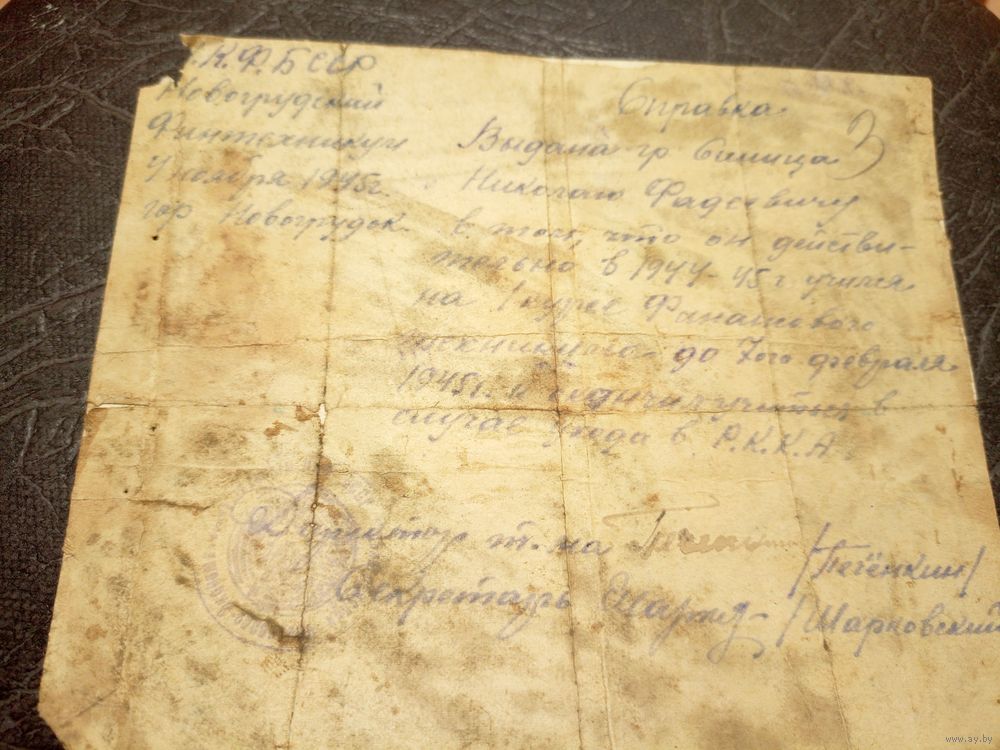 К.Ф.БССР
Новогрудский
Финтехникум
4 ноября 1945г.
гор Новогрудок.
Справка
3
Выдана гр Синица
Николаю Фадеевичу
в том, что он действи-
тельно в 1944-45 г учился
на 1 курсе Финансового
до 7ого февраля
1945г. и в
случае ухода в Р.К.К.А
Директор т.-ма /Печёнкин/
Секретарь /Шарковский
www.ay.by